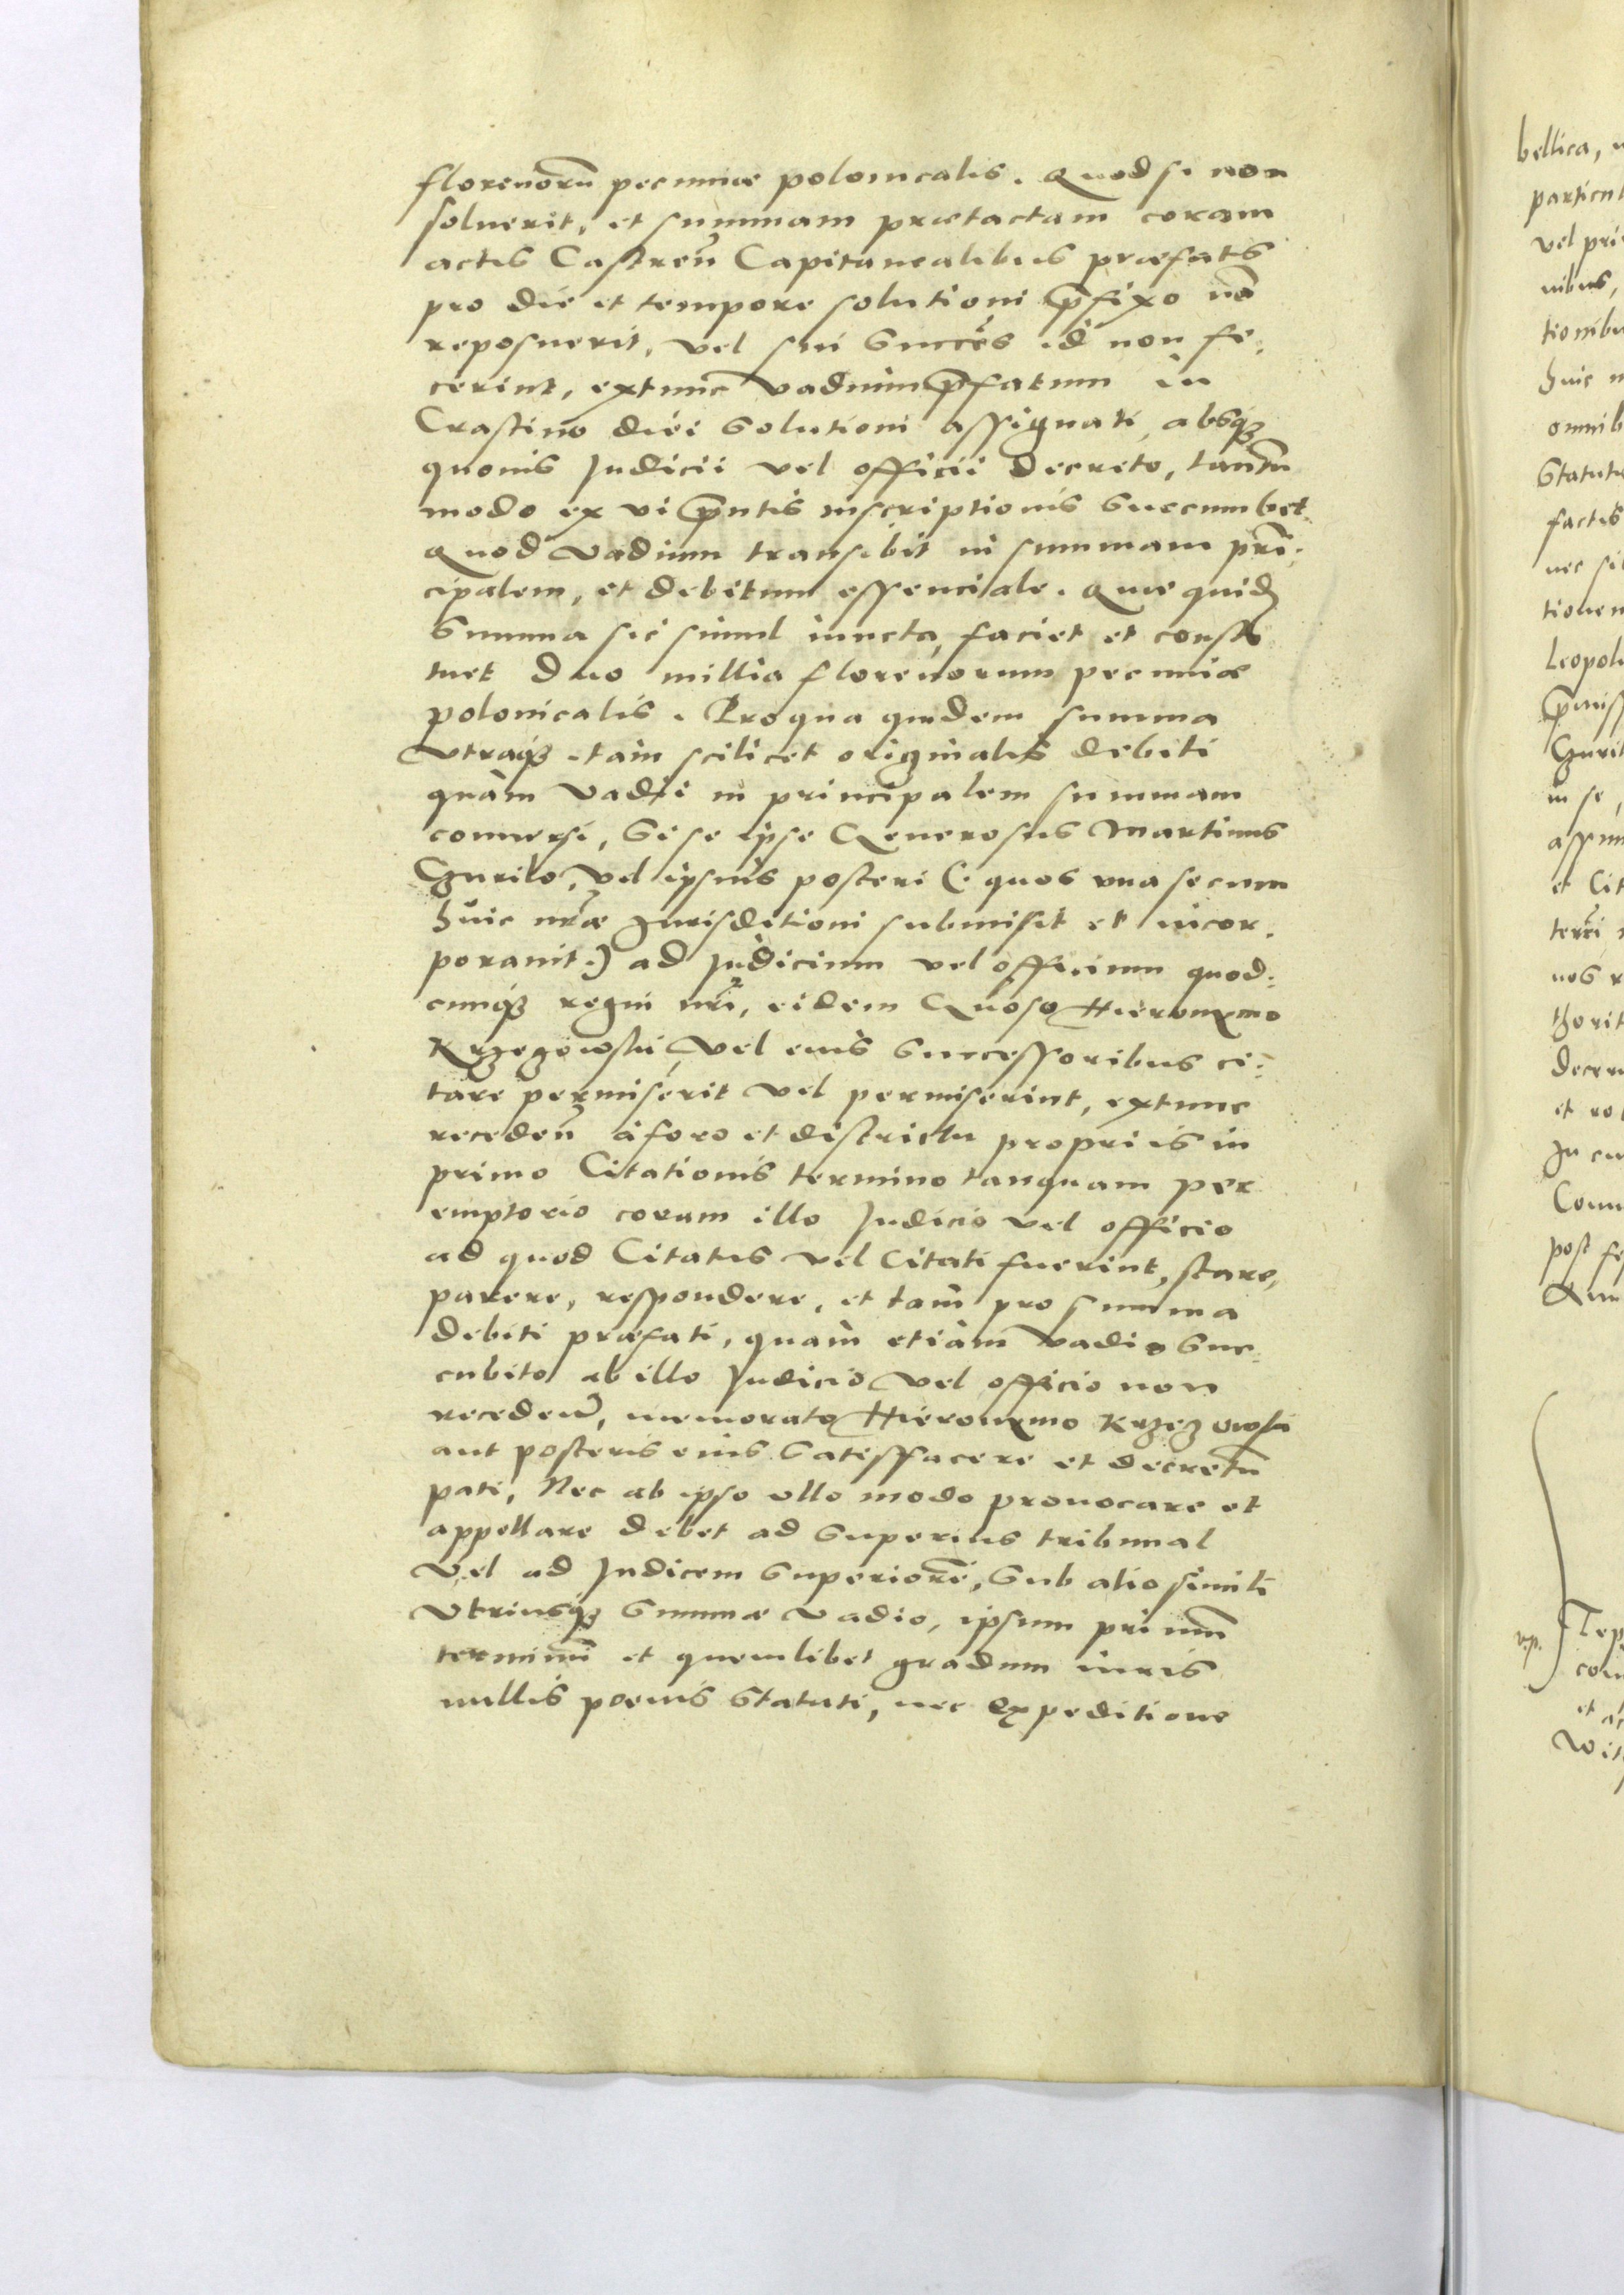 florenorũ pecuniæ polonicalis. Quod si non
soluerit, et summam prætactam coram
actis Castreñ Capitanealibus præfatis
pro die et tempore solutioni p̃fixo nõ
reposuerit, vel sui Succẽs id non fe:
cerint, extunc vadium p̃fatum in
Crastino diei Solutioni assignati, absq̃
quouis Judicii vel officii decreto, tantũ
modo ex vi p̃ntis inscriptionis Succumbet.
Quod vadium transibit in summam prin:
cipalem, et debitum essenciale. Quæ quid̃
Summa sic simul iuncta, faciet et consti
tuet Duo millia florenorum pecuniæ
polonicalis. Pro qua quidem summa
vtraq̃ tam scilicet originalis debiti
quàm vadii in principalem summam
conuersi, Si se ipse Generosus Martinus
Churilo, vel ipsius posteri (: quos vna secum
huic nr̃æ Jurisditioni submisit et incor:
porauit:) ad Judicium vel officium quod:
cunq̃ regni nr̃i, eidem Gñoso Hieronymo
Krzezowski, vel eius Successoribus ci:
tare permiserit vel permiserint, extunc
recedeñ à foro et districtu propriis in
primo Citationis termino tanquam per
emptorio coram illo Judicio vel officio
ad quod Citatus vel Citati fuerint, stare,
parere, respondere, et tam pro summa
debiti præfati, quàm etiam vadio Suc:
cubito ab illo Judicio vel officio non
recedeñ, memorato Hieronymo Krzezowski
aut posteris eius Satisfacere et decretũ
pati, Nec ab ipso ullo modo prouocare et
appellare debet ad Superius tribunal
vel ad Judicem Superiorẽ, Sub alio simili
vtriusq̃ Summæ vadio, ipsum primũ
terminũ et quemlibet gradum iuris
nullis poenis Statuti, nec Expeditione
bellica,
vel
Leopol
et Cit
post